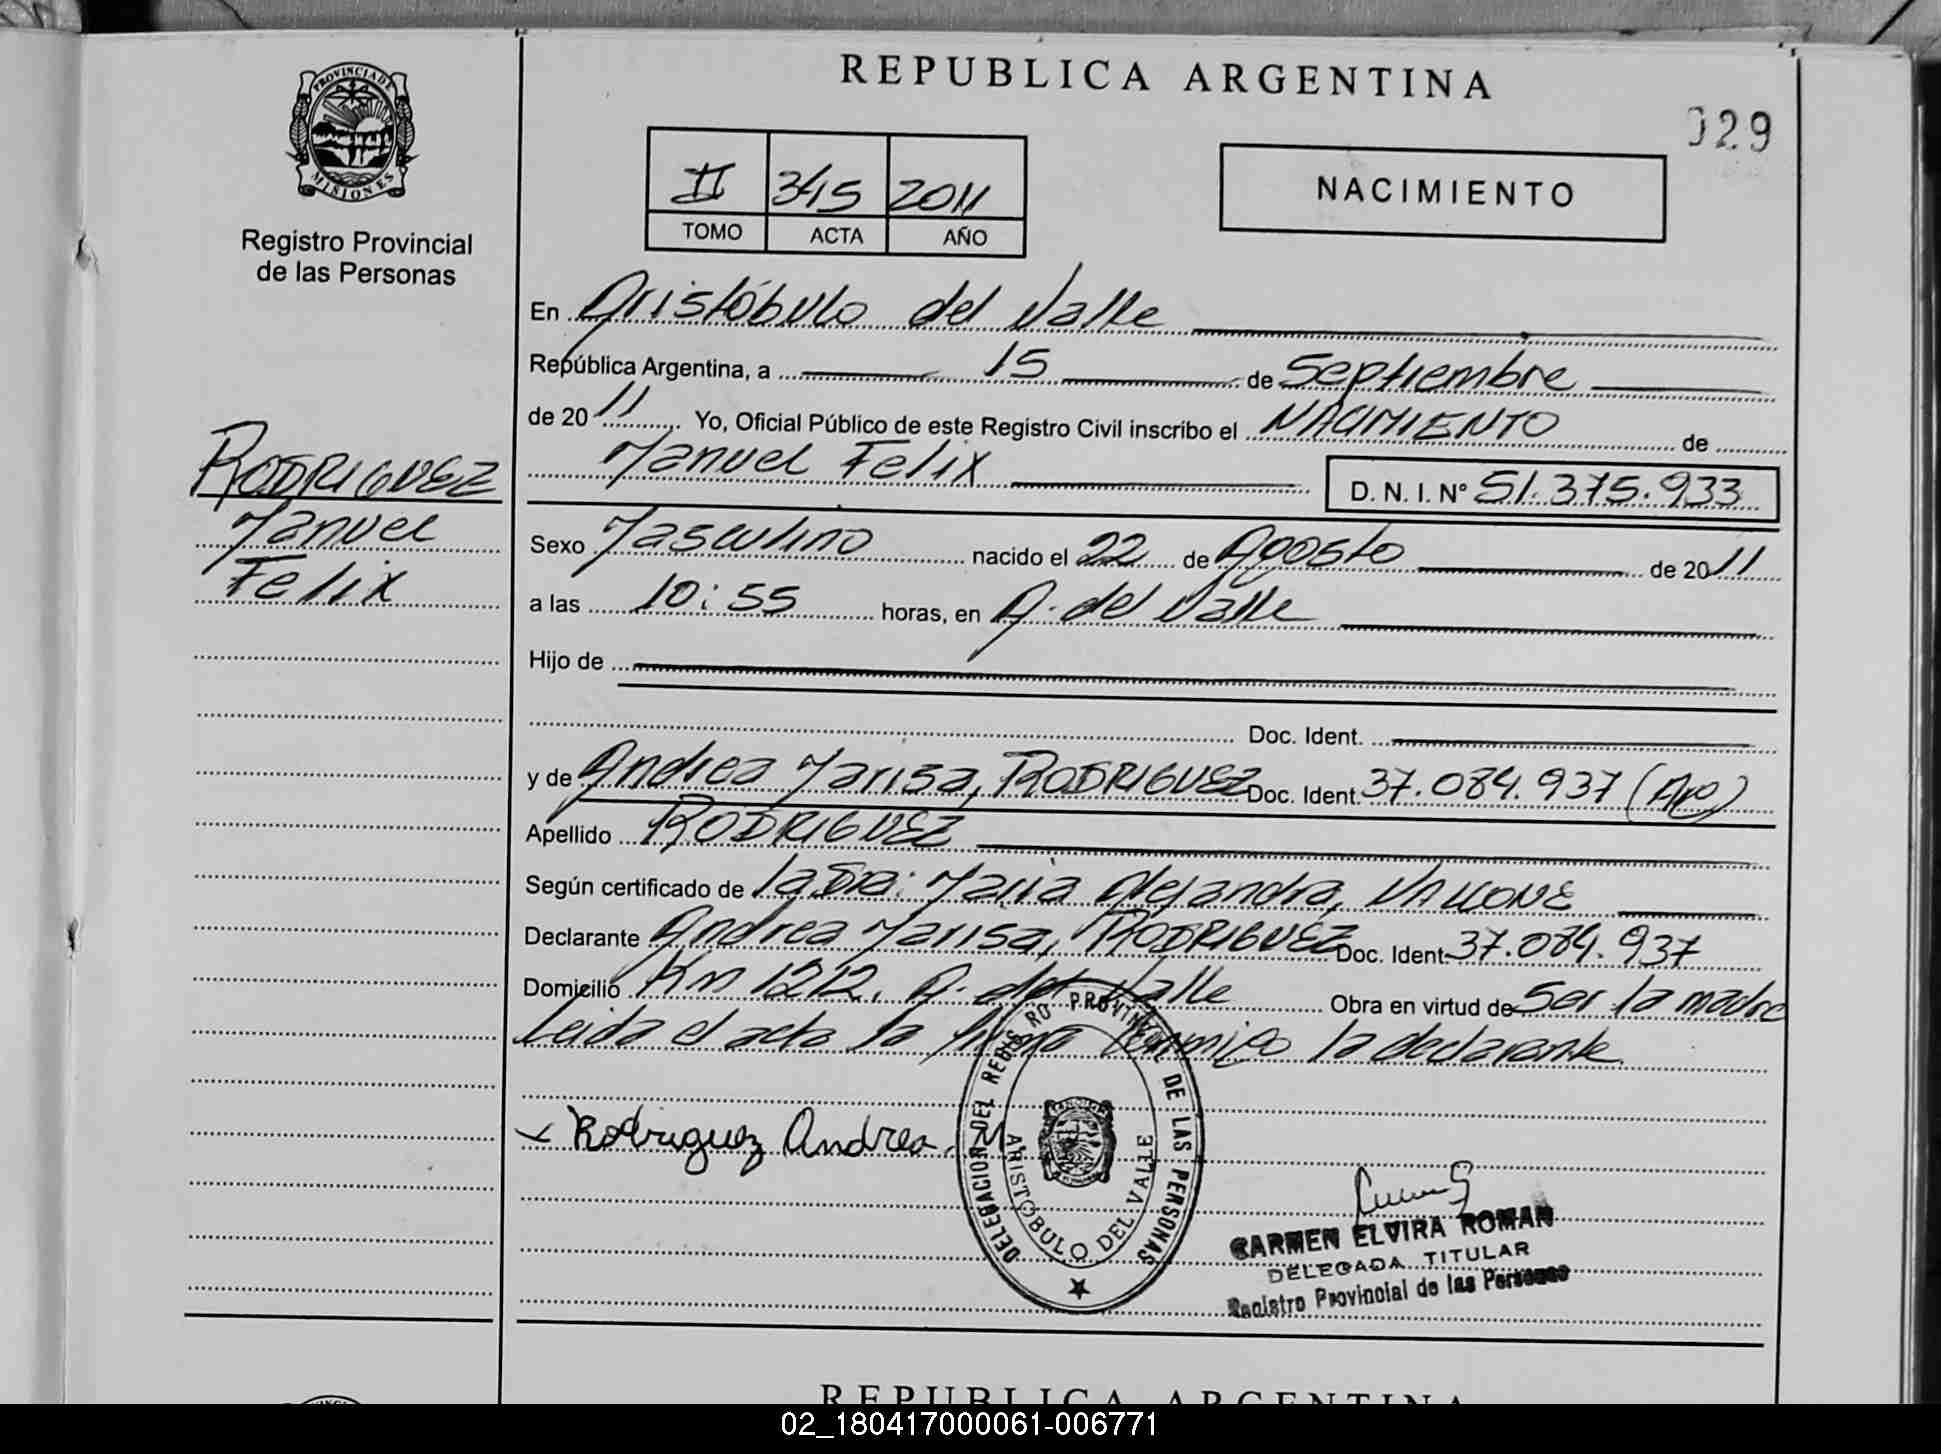 REPUBLICA ARGENTINA
029
PROVINCIA DE
MISIONES
Registro Provincial
de las Personas
II 345 2011
TOMO ACTA AÑO
NACIMIENTO
En Aristóbulo del Valle
República Argentina, a 15 de Septiembre
de 2011 Yo, Oficial Público de este Registro Civil inscribo el NACIMIENTO de
Manuel Felix D. N. I. Nº 51.375.933
RODRIGUEZ
Manuel
Felix
Sexo Masculino nacido el 22 de Agosto de 2011
a las 10:55 horas, en A. del Valle
Hijo de
Doc. Ident.
y de Andrea Marisa, RODRIGUEZ Doc. Ident. 37.084.937 (Arg)
Apellido RODRIGUEZ
Según certificado de la Dra: Maria Alejandra, VALLONE
Declarante Andrea Marisa, RODRIGUEZ Doc. Ident. 37.084.937
Domicilio Km 1212, A. del Valle Obra en virtud de Ser la madre
Leida el acta la firma conmigo la declarante
x Rodriguez Andrea. M
DELEGACION DEL REGISTRO PROVINCIAL DE LAS PERSONAS
ARISTOBULO DEL VALLE
CARMEN ELVIRA ROMAN
DELEGADA TITULAR
Registro Provincial de las Personas
REPUBLICA ARGENTINA
02_180417000061-006771